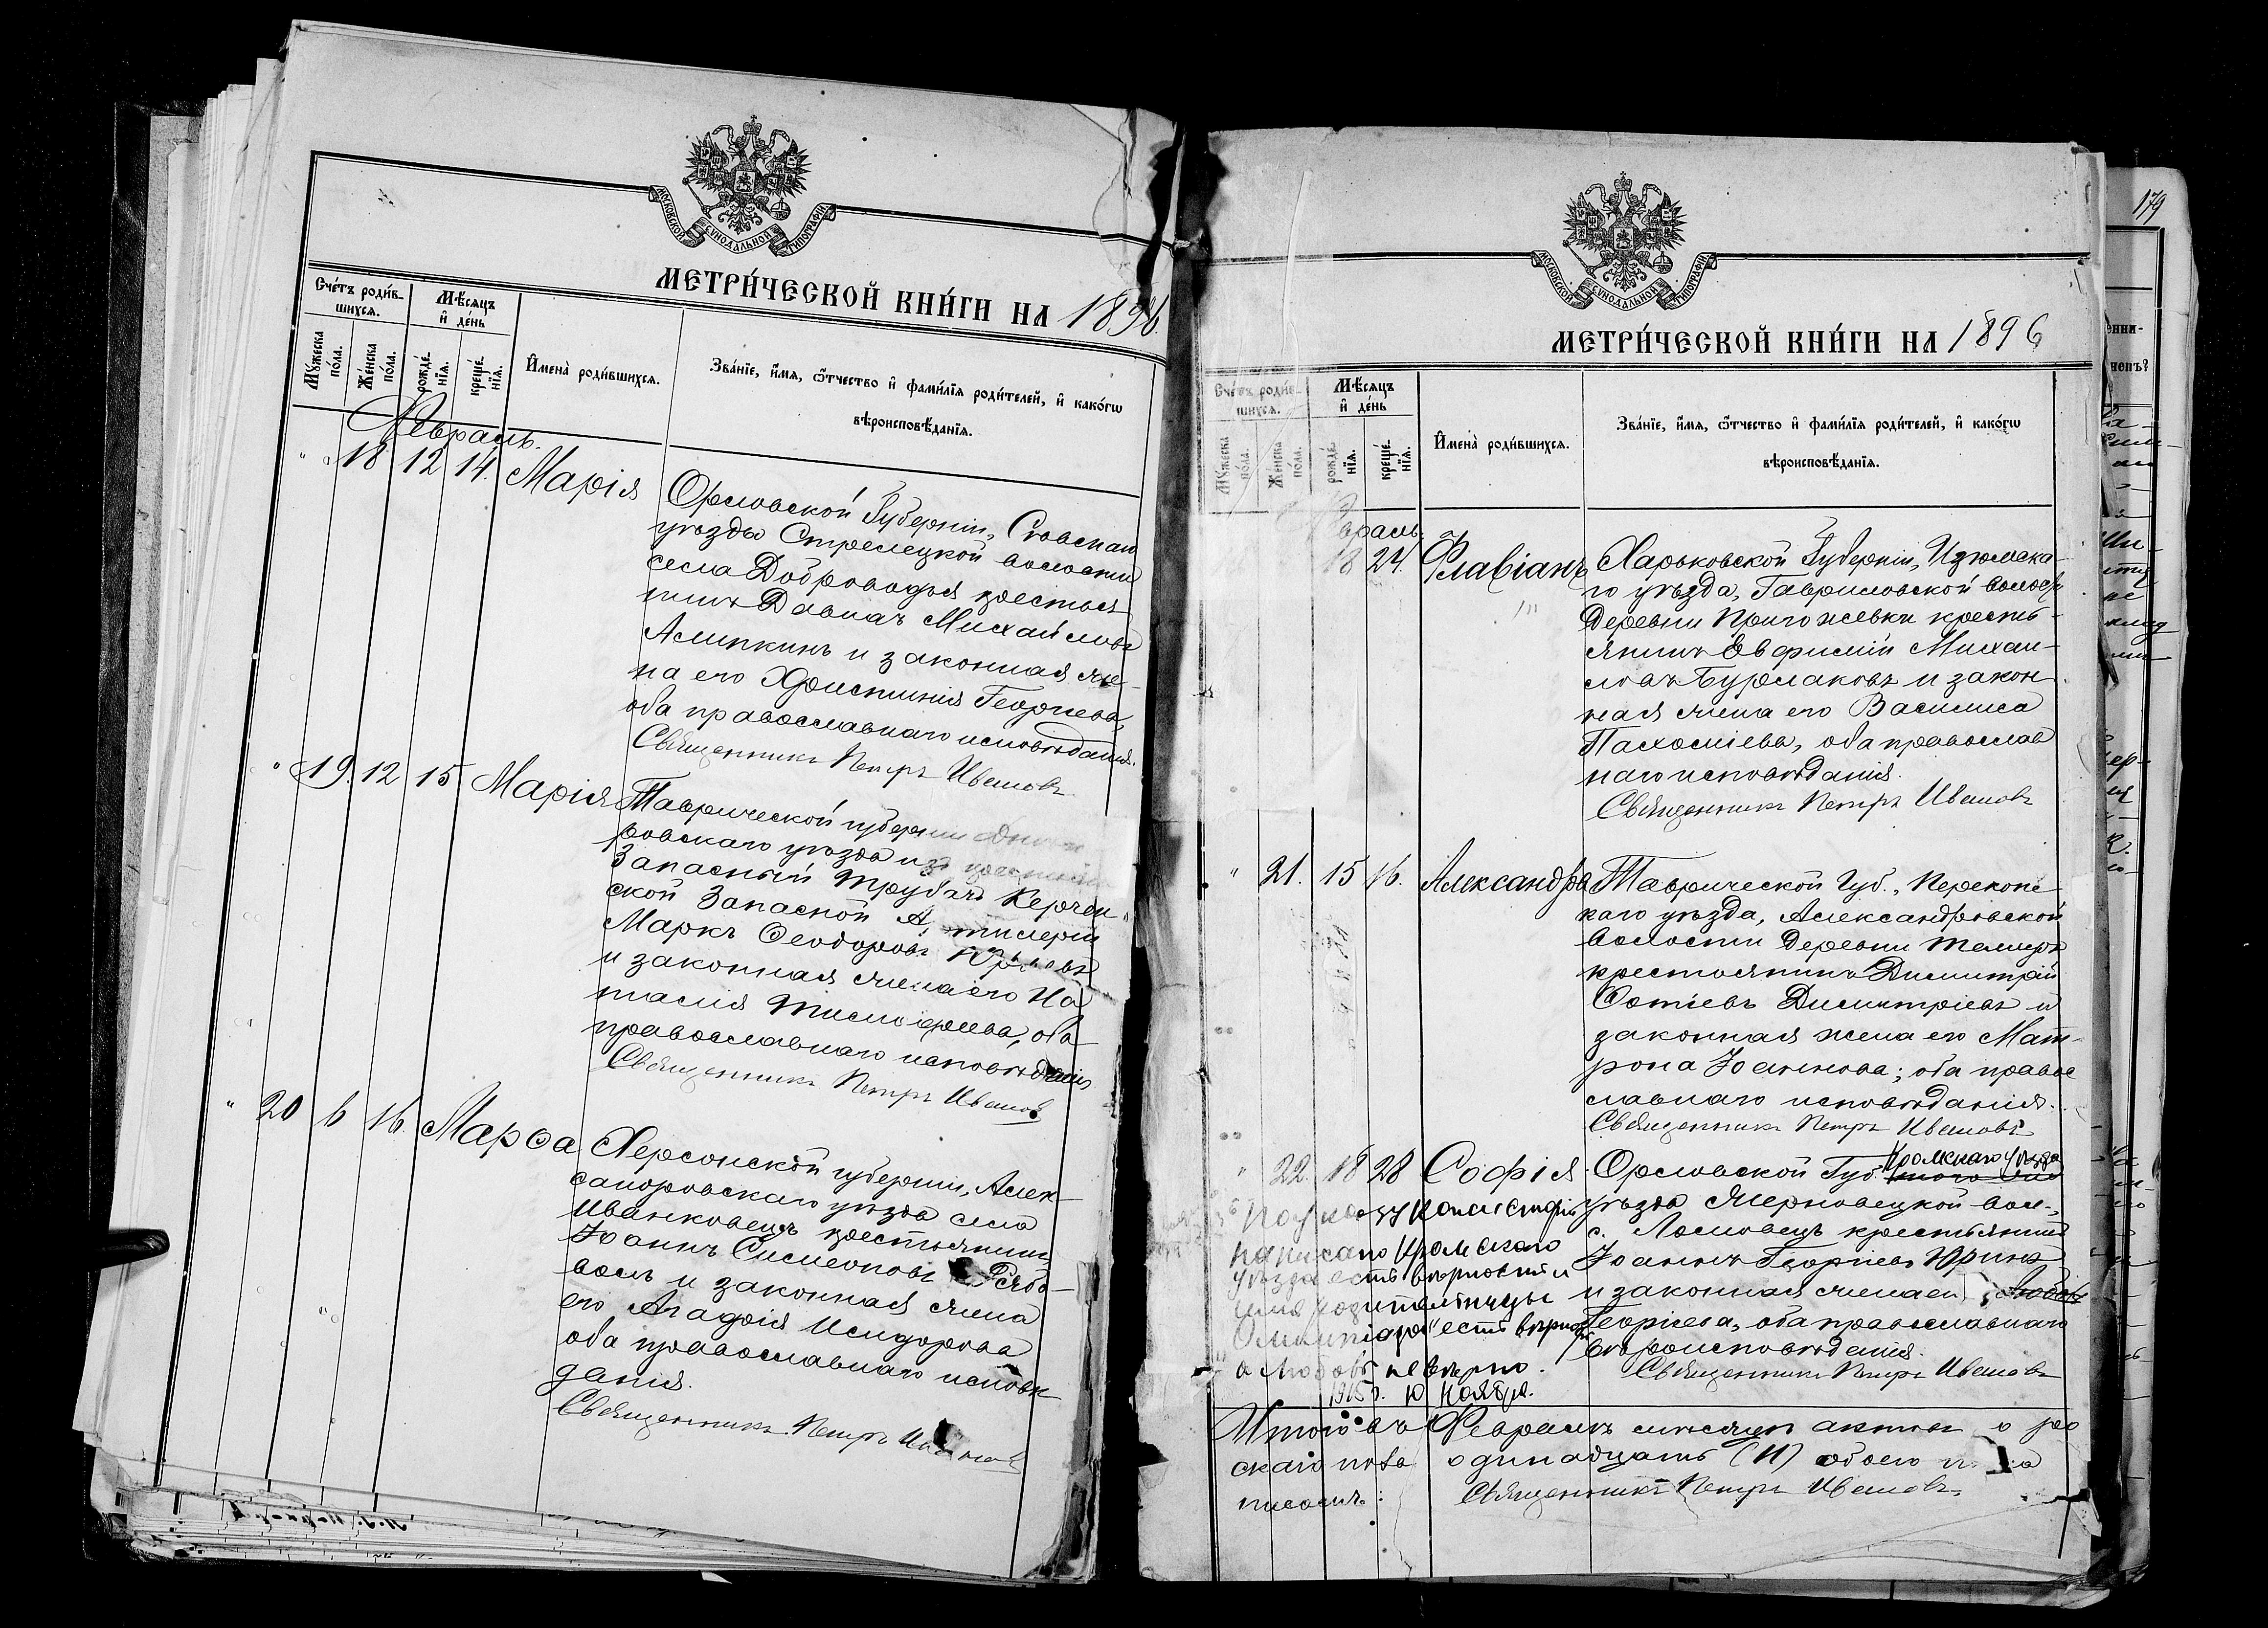 МОСКОВСКОЙ СѴНОДАЛЬНОЙ ТИПОГРАФІИ
МЕТРИ́ЧЕСКОЙ КНИ́ГИ НА 1896.
Сче́тъ роди́в-
шихся.
Мѣ́сяцъ
и҆ де́нь
Му́жеска по́ла.
Же́нска по́ла.
рожде́нїя.
креще́нїя.
И҆мена̀ роди́вшихся.
Зва́нїе, и҆́мя, ѻ҆́тчество и҆ фами́лїя роди́телей, и҆ како́гѡ
вѣроисповѣ́данїя.
Февраль.
" 18 12 14. Марія
Орловской Губерніи, Сѣвскаго
уѣзда Стрелецкой волости
села Доброводья крестья
нинъ Давидъ Михайловъ
Алипкинъ и законная же-
на его Христинія Георгіева,
оба православнаго исповѣданія.
Священникъ Петръ Ивановъ
" 19. 12 15 Марія
Таврической губерніи
ровскаго уѣзда изъ
Запасный трубачъ Керчен
ской Запасной Артиллеріи
Маркъ Ѳеодоровъ
и законная жена его На
талія Тимоѳеева, оба
православнаго исповѣданія
Священникъ Петръ Ивановъ
" 20 6 16. Марѳа
Херсонской губерніи, Алек-
уѣзда села
Иванковецъ крестьянинъ
Іоаннъ Симеоновъ Рябо-
волъ и законная жена
его Агафія Исидорова
оба православнаго исповѣ
данія.
Священникъ Петръ Ивановъ
МОСКОВСКОЙ СѴНОДАЛЬНОЙ ТИПОГРАФІИ
МЕТРИ́ЧЕСКОЙ КНИ́ГИ НА 1896
Сче́тъ роди́в-
шихся.
Мѣ́сяцъ
и҆ де́нь
Му́жеска по́ла.
Же́нска по́ла.
рожде́нїя.
креще́нїя.
И҆мена̀ роди́вшихся.
Зва́нїе, и҆́мя, ѻ҆́тчество и҆ фами́лїя роди́телей, и҆ како́гѡ
вѣроисповѣ́данїя.
враль.
18 24. Флавіанъ
Харьковской Губерніи, Изюмска-
го уѣзда, Гавриловской волости
Деревни Пригожевки кресть-
янинъ Евфимій Михаи-
ловъ Бурлаковъ и закон
ная жена его Василиса
Пахоміева, оба православ
наго исповѣданія.
Священникъ Петръ Ивановъ
" 21. 15 16. Александра
Таврической Губ., Перекопс-
каго уѣзда, Александровской
волости Деревни
крестьянинъ Димитрій
Фотіевъ Димитріевъ и
законная жена его Мат-
рона Іоаннова; оба правос
лавнаго исповѣданія.
Священникъ Петръ Ивановъ
" 22. 18 28 Софія
Орловской Губ. Кромскаго уѣзда
уѣзда Жерновецкой вол.,
с. Ломовецъ крестьянинъ
Іоаннъ Георгіевъ Юринъ
и законная жена его Любовь
Георгіева, оба православнаго
вѣроисповѣданія.
Священникъ Петръ Ивановъ
По указу Консисторіи
написано Кромскаго
уѣзда есть вѣрно и
имя родительницы
Олимпіада есть вѣрно
а Любовь невѣрно.
1915 г. 10 Ноября.
Итого въ Февралѣ мѣсяцѣ актовъ о ро
одинадцать (11) обоего пола
Священникъ Петръ Ивановъ
179